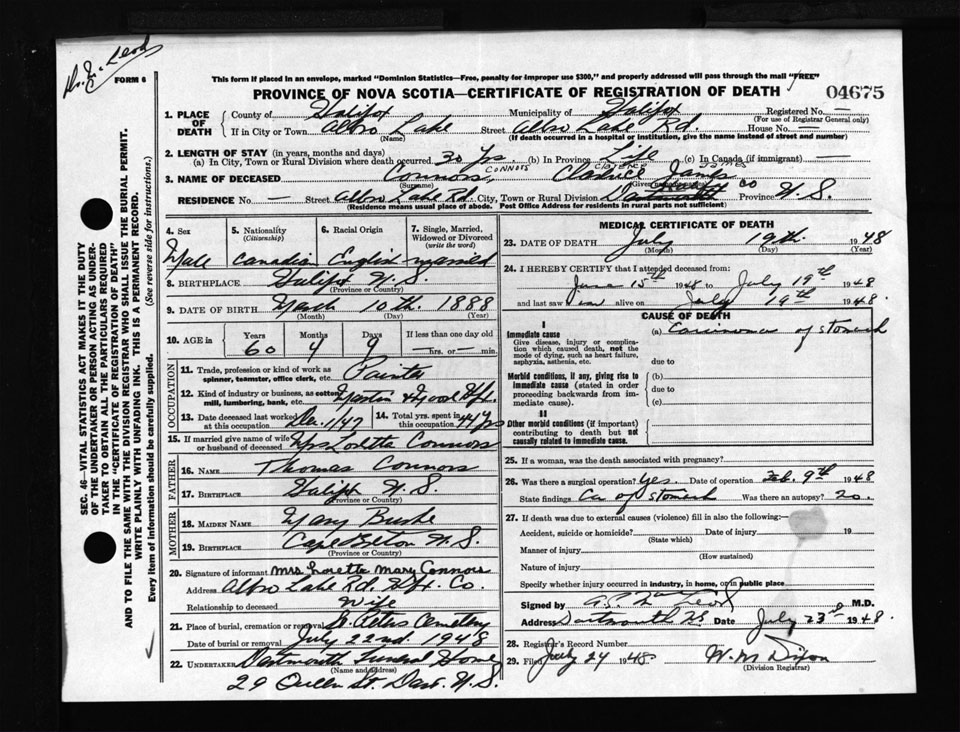 Dr. Mc Leod
FORM 6
This form if placed in an envelope, marked "Dominion Statistics—Free, penalty for improper use $300," and properly addressed will pass through the mail "FREE"
PROVINCE OF NOVA SCOTIA—CERTIFICATE OF REGISTRATION OF DEATH
04675
1. PLACE OF DEATH County of Halifax Municipality of Halifax Registered No. —
(For use of Registrar General only)
If in City or Town Albro Lake Street Albro Lake Rd. House No. —
(Name) (If death occurred in a hospital or institution, give the name instead of street and number)
2. LENGTH OF STAY (in years, months and days)
(a) In City, Town or Rural Division where death occurred 30 Yrs. (b) In Province Life (c) In Canada (if immigrant) —
CONNORS CLARENCE JAMES
3. NAME OF DECEASED Connors, Clarence James
(Surname) (Given names)
RESIDENCE No. — Street Albro Lake Rd. City, Town or Rural Division Dartmouth CO Province N. S.
(Residence means usual place of abode. Post Office Address for residents in rural parts not sufficient)
4. Sex 5. Nationality (Citizenship) 6. Racial Origin 7. Single, Married, Widowed or Divorced (write the word)
Male Canadian English married
8. BIRTHPLACE Halifax N. S.
(Province or Country)
9. DATE OF BIRTH March 10th. 1888
(Month) (Day) (Year)
10. AGE in Years Months Days If less than one day old
60 4 9 — hrs. or — min.
OCCUPATION
11. Trade, profession or kind of work as spinner, teamster, office clerk, etc. Painter
12. Kind of industry or business, as cotton mill, lumbering, bank, etc. Hfx.
13. Date deceased last worked at this occupation Dec. 1/47 14. Total years spent in this occupation 44 Yrs
15. If married give name of wife or husband of deceased Mrs Loretta Connors
FATHER
16. NAME Thomas Connors
17. BIRTHPLACE Halifax N. S.
(Province or Country)
MOTHER
18. MAIDEN NAME Mary Burke
19. BIRTHPLACE Cape Breton N. S.
(Province or Country)
20. Signature of informant Mrs Loretta Mary Connors
Address Albro Lake Rd. Hfx. Co.
Relationship to deceased Wife
21. Place of burial, cremation or removal St. Peters Cemetery
Date of burial or removal July 22nd. 1948
22. UNDERTAKER Dartmouth Funeral Home
(Name and address)
29 Queen St. Dart. N. S.
MEDICAL CERTIFICATE OF DEATH
23. DATE OF DEATH July 19th. 1948
(Month) (Day)
24. I HEREBY CERTIFY that I attended deceased from:
June 15th 1948 to July 19th 1948
and last saw him alive on July 19th 1948.
CAUSE OF DEATH
I
Immediate cause (a) Carcinoma of stomach
Give disease, injury or complication which caused death, not the mode of dying, such as heart failure, asphyxia, asthenia, etc. due to
Morbid conditions, if any, giving rise to immediate cause (stated in order proceeding backwards from immediate cause). (b)
due to
(c)
II
Other morbid conditions (if important) contributing to death but not causally related to immediate cause.
25. If a woman, was the death associated with pregnancy?
26. Was there a surgical operation? Yes. Date of operation Feb. 9th 1948
State findings Ca of stomach Was there an autopsy? no.
27. If death was due to external causes (violence) fill in also the following:—
Accident, suicide or homicide? Date of injury 19
(State which)
Manner of injury
(How sustained)
Nature of injury
Specify whether injury occurred in industry, in home, or in public place
Signed by M.D.
Address Dartmouth NS Date July 23rd 1948.
28. Registrar's Record Number
29. Filed July 24 1948. W. M Dixon
(Division Registrar)
SEC. 46—VITAL STATISTICS ACT MAKES IT THE DUTY
OF THE UNDERTAKER OR PERSON ACTING AS UNDER-
TAKER TO OBTAIN ALL THE PARTICULARS REQUIRED
IN THE "CERTIFICATE OF REGISTRATION OF DEATH"
AND TO FILE THE SAME WITH THE DIVISION REGISTRAR WHO SHALL ISSUE THE BURIAL PERMIT.
WRITE PLAINLY WITH UNFADING INK. THIS IS A PERMANENT RECORD.
Every item of information should be carefully supplied. (See reverse side for instructions.)